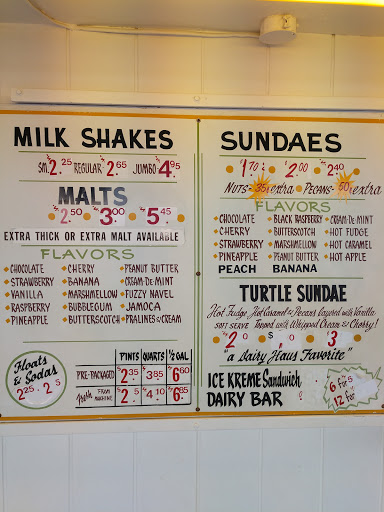 MILK SHAKES
SM. $2.25 REGULAR $2.65 JUMBO $4.95
MALTS
$2.50 $3.00 $5.45
EXTRA THICK OR EXTRA MALT AVAILABLE
FLAVORS
CHOCOLATE CHERRY PEANUT BUTTER
STRAWBERRY BANANA CREAM-DE-MINT
VANILLA MARSHMELLOW FUZZY NAVEL
RASPBERRY BUBBLEGUM JAMOCA
PINEAPPLE BUTTERSCOTCH PRALINES & CREAM
Floats & Sodas
2.25
PINTS QUARTS ½ GAL
PRE-PACKAGED $2.35 $3.85 $6.60
Fresh FROM MACHINE $4.10 $6.85
SUNDAES
$1.70 $2.00 $2.40
NUTS-35 extra PECANS-50 extra
FLAVORS
CHOCOLATE BLACK RASPBERRY CREAM-DE-MINT
CHERRY BUTTERSCOTCH HOT FUDGE
STRAWBERRY MARSHMELLOW HOT CARAMEL
PINEAPPLE PEANUT BUTTER HOT APPLE
PEACH BANANA
TURTLE SUNDAE
Hot Fudge, Hot Caramel & Pecans Layered with Vanilla
SOFT SERVE Topped with Whipped Cream & Cherry!
"a Dairy Haus Favorite"
ICE KREME Sandwich
DAIRY BAR
6 for
12 for